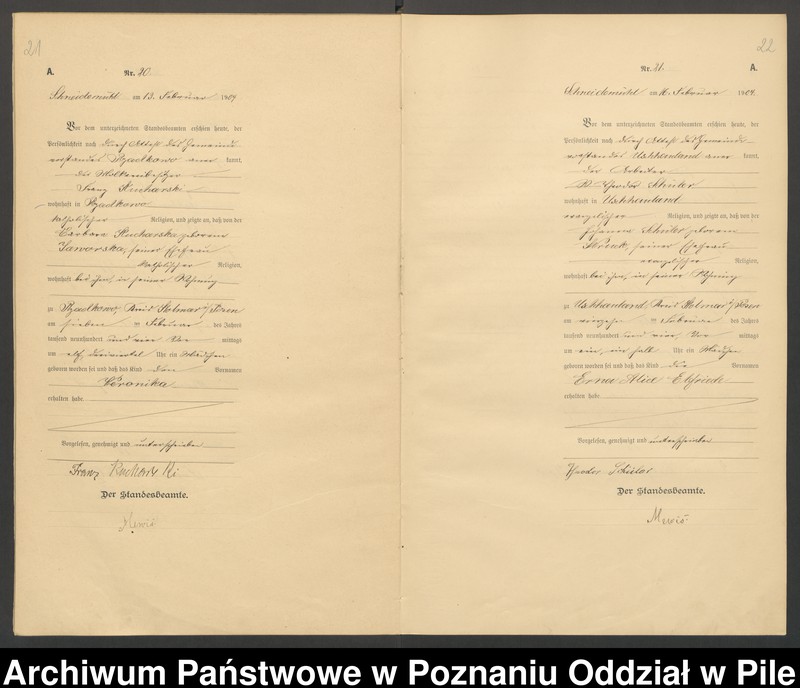 21
A.
Nr. 20.
Schneidemühl am 13. Februar 1904
Vor dem unterzeichneten Standesbeamten erschien heute, der
Persönlichkeit nach durch Attest des Gemeinde-
vorstandes Rzadkowo aner kannt,
der
Franz Kucharski
wohnhaft in Rzadkowo
katholischer Religion, und zeigte an, daß von der
Barbara Kucharska geborenen
Jaworska, seiner Ehefrau
katholischer Religion,
wohnhaft bei ihm, in seiner Wohnung
zu Rzadkowo, Kreis Kolmar i/Posen
am sieben ten Februar des Jahres
tausend neunhundert und vier Vor mittags
um elf dreiviertel Uhr ein Mädchen
geboren worden sei und daß das Kind den Vornamen
Veronika
erhalten habe.
Vorgelesen, genehmigt und unterschrieben
Franz Kucharski
Der Standesbeamte.
22
Nr. 21.
A.
Schneidemühl am 16. Februar 1904.
Vor dem unterzeichneten Standesbeamten erschien heute, der
Persönlichkeit nach durch Attest des Gemeinde-
vorstandes Uschhauland aner kannt,
der Arbeiter
Theodor Schüler
wohnhaft in Uschhauland
evangelischer Religion, und zeigte an, daß von der
Johanna Schüler geborenen
seiner Ehefrau
evangelischer Religion,
wohnhaft bei ihm, in seiner Wohnung
zu Uschhauland, Kreis Kolmar i/Posen
am vierzehn ten Februar des Jahres
tausend neunhundert und vier, Vor mittags
um ein, ein halb Uhr ein Mädchen
geboren worden sei und daß das Kind die Vornamen
Erna Alice Elfriede
erhalten habe.
Vorgelesen, genehmigt und unterschrieben
Theodor Schüler
Der Standesbeamte.
Archiwum Państwowe w Poznaniu Oddział w Pile